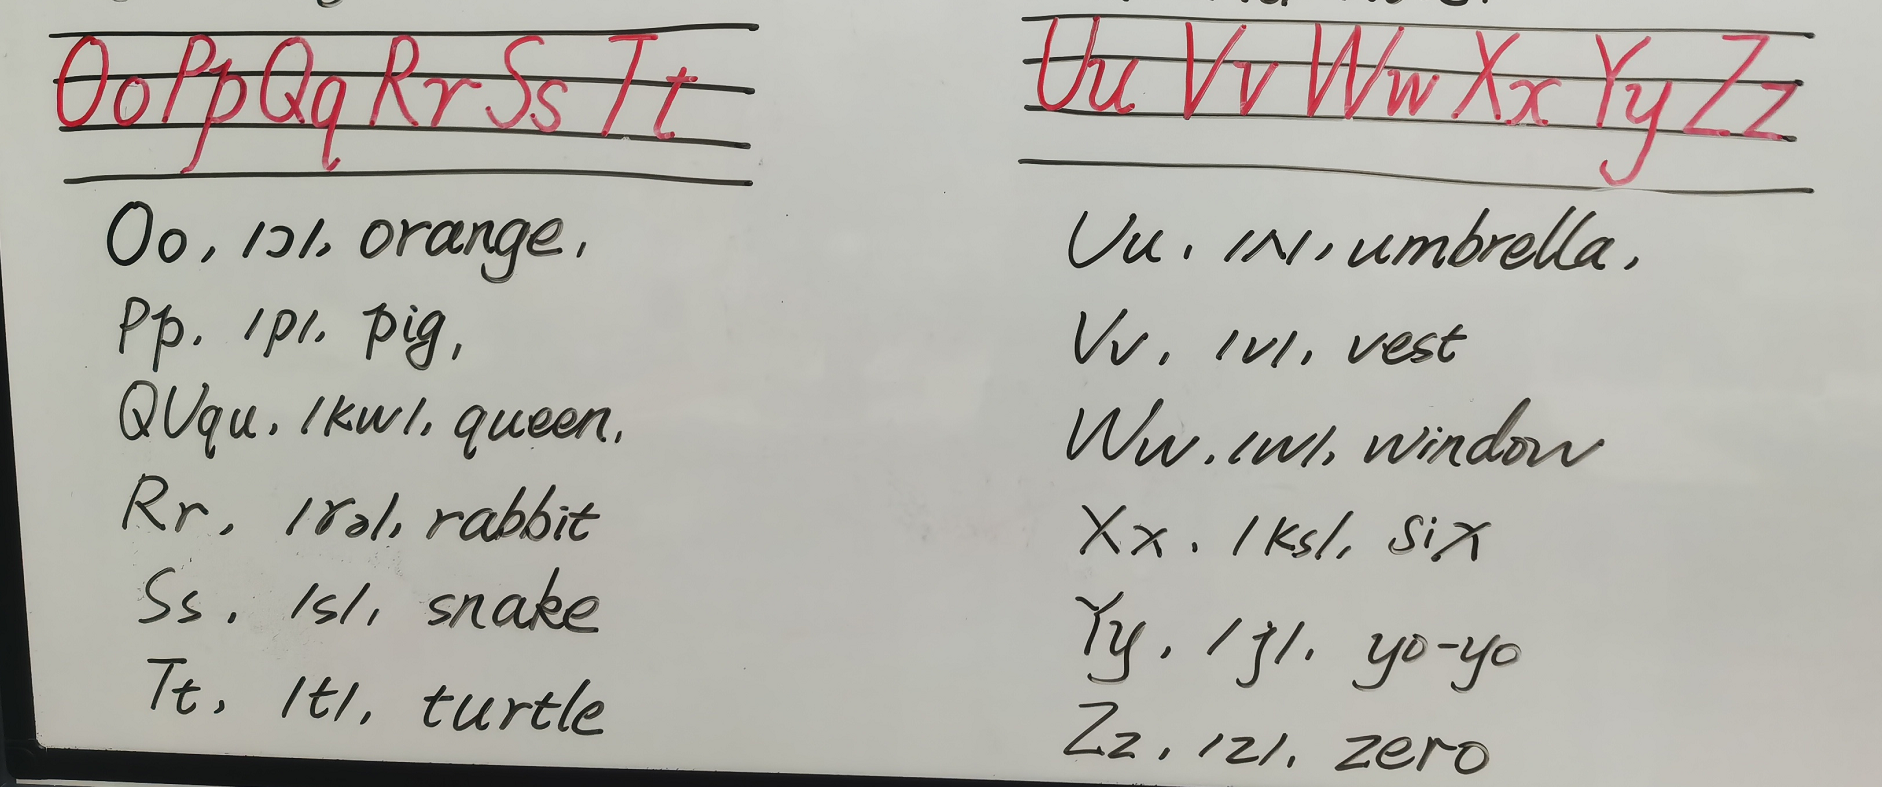 Oo Pp Qq Rr Ss Tt
Oo, /ɔ/, orange,
Pp. /p/, pig,
QUqu. /kw/, queen,
Rr, /rə/, rabbit
Ss, /s/, snake
Tt, /t/, turtle
Uu Vv Ww Xx Yy Zz
Uu, /ʌ/, umbrella,
Vv, /v/, vest
Ww, /w/, window
Xx, /ks/, six
Yy, /j/, yo-yo
Zz, /z/, zero